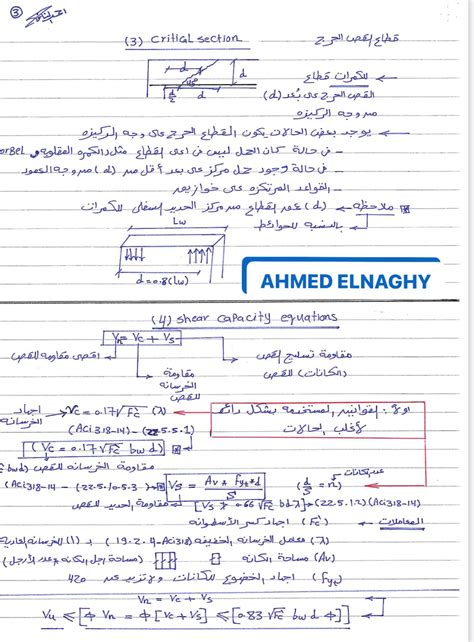 3
(3) critical section قطاع القص الحرج
d
45°
d
d
d/2
← للكمرات قطاع
القص الحرج على بُعد (d)
من وجه الركيزه
← يوجد بعض الحالات يكون القطاع الحرج على وجه الركيزه
- فى حالة كان الحمل ليس فى اعلى القطاع مثل الكمره المقلوبه و orbel
- فى حالة وجود حمل مركز على بعد أقل من (d) من وجه العمود
- القواعد المرتكزه على خوازيق
ملاحظه ← (d) عمق القطاع من مركز الحديد السفلى للكمرات
← بالنسبه للحوائط
Lw
d = 0.8(Lw)
AHMED ELNAGHY
(4) shear capacity equations
Vn = Vc + Vs
اقصى مقاومه للقص
مقاومة تسليح القص
(الكانات) للقص
مقاومة
الخرسانه
للقص
اولاً: القوانين المستخدمه بشكل دائم
لأغلب الحالات
اجهاد الخرسانه ← Vc = 0.17√Fc (λ)
(Aci318-14) - (22.5.5.1)
(Vc = 0.17 √Fc bw d)
مقاومة الخرسانه للقص
(Aci318-14 - (22.5.10.5.3) → Vs = Av * Fyt * d / S
(d/S = n) عدد الكانات
مقاومة الحديد للقص [Vs ≯ 0.66 √Fc bd] → (22.5.1.2) (Aci318-14)
المعاملات ← (Fc) اجهاد كسر الأسطوانه
(λ) معامل الخرسانه الخفيفه (19.2.4-Aci318) ← (1) للخرسانه العاديه
(Av) مساحة الكانه (مساحة رجل الكانه * عدد الأرجل)
(Fyt) اجهاد الخضوع للكانات ولا تزيد عن 420
Vn = Vc + Vs
Vu ≤ [ϕ Vn = ϕ [Vc + Vs] ≤ [0.83 √Fc bw d ϕ]